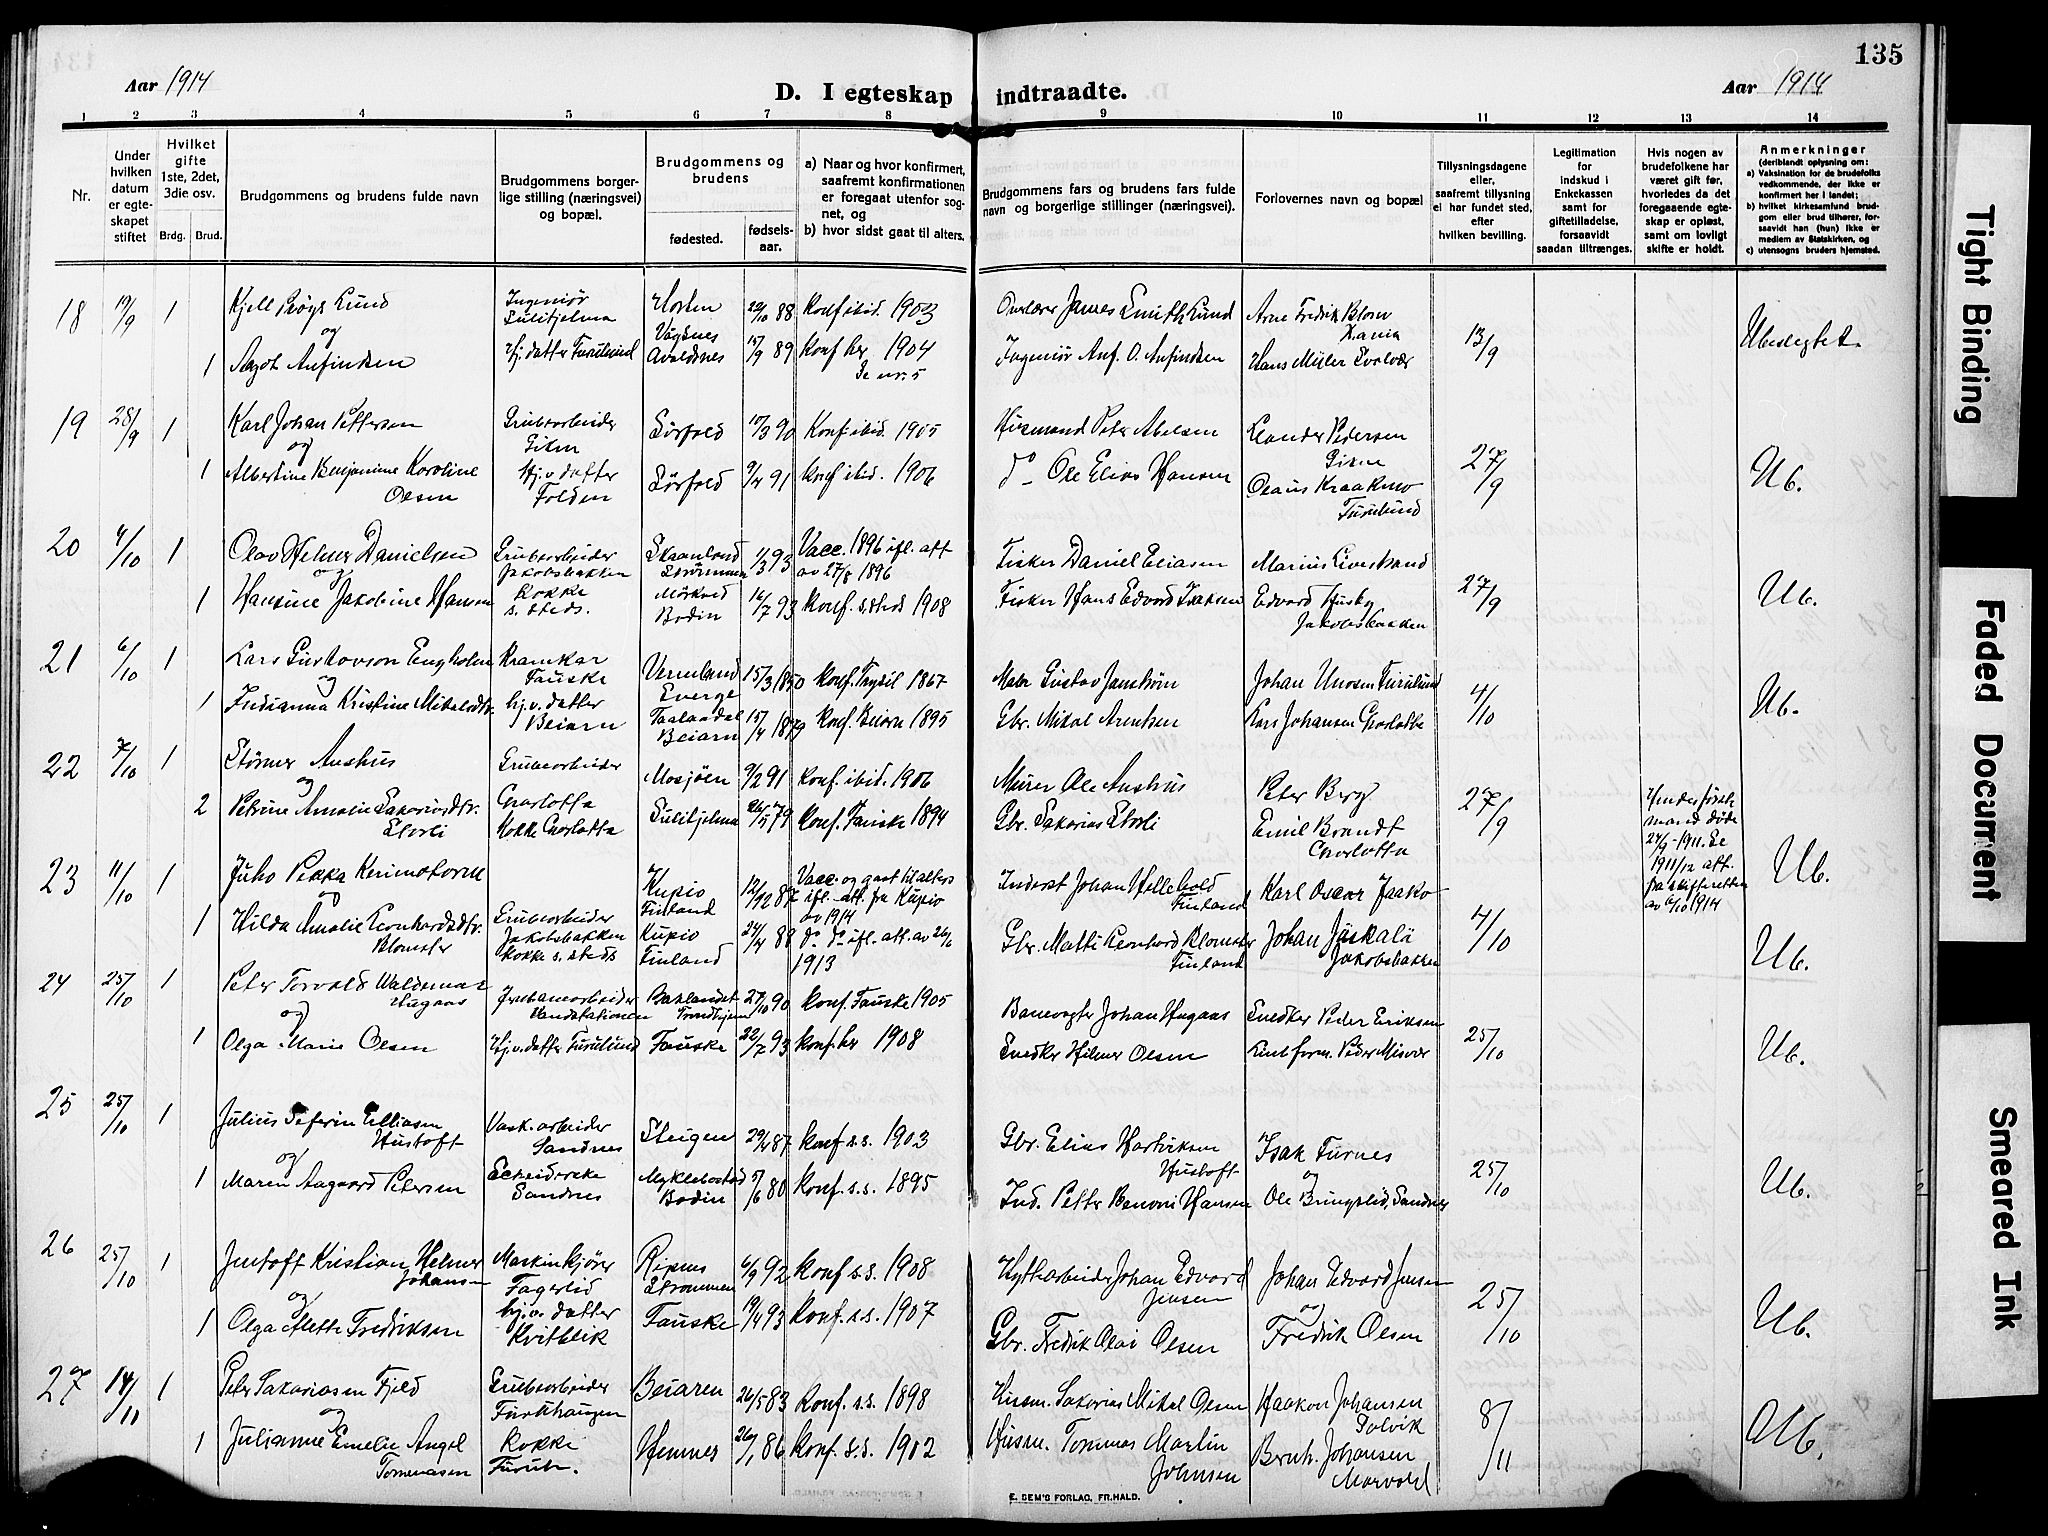 135
Aar 1914
D. I egteskap indtraadte.
Aar 1914
1 2 3 4 5 6 7 8 9 10 11 12 13 14
Nr.
Under hvilken datum er egteskapet stiftet
Hvilket gifte 1ste, 2det, 3die osv.
Brdg. Brud.
Brudgommens og brudens fulde navn
Brudgommens borgerlige stilling (næringsvei) og bopæl.
Brudgommens og brudens
fødested.
fødselsaar.
a) Naar og hvor konfirmert, saafremt konfirmationen er foregaat utenfor sognet, og
b) hvor sidst gaat til alters.
Brudgommens fars og brudens fars fulde navn og borgerlige stillinger (næringsvei).
Forlovernes navn og bopæl
Tillysningsdagene eller, saafremt tillysning ei har fundet sted, efter hvilken bevilling.
Legitimation for indskud i Enkekassen samt for giftetilladelse, forsaavidt saadan tiltrænges.
Hvis nogen av brudefolkene har været gift før, hvorledes da det foregaaende egteskap er opløst, samt om lovligt skifte er holdt.
Anmerkninger
(deriblandt oplysning om:
a) Vaksination for de brudefolks vedkommende, der ikke er konfirmert her i landet;
b) hvilket kirkesamfund brudgom eller brud tilhører, forsaavidt han (hun) ikke er medlem av Statskirken, og
c) utensogns bruders hjemsted.
18 19/9 1 Kjell Lund Ingeniør Sulitjelma Horten 22/10 88 Konf. ibid. 1903 Overlærer James Smith Lund Arne Fredrik Blom Xania 13/9 Ubeslegtet.
og
1 Aagot Anfindsen Hj. datter Furulund Avaldsnes 15/9 89 Konf her 1904 Se nr. 5 Ingeniør Anf. O. Anfindsen Hans Svolvær
19 28/9 1 Karl Johan Pettersen Grubearbeider Giken Sørfold 17/3 90 Konf. ibid. 1905 Husmand Peter Abelsen Leander Pedersen Giken 27/9 Ub.
og
1 Albertine Benjamine Karoline Olsen Hj. v. datter Folden Sørfold 9/4 91 Konf ibid. 1906 do - Ole Elias Hansen Olaus Kraakmo Furulund
20 4/10 1 Olav Helmer Danielsen Grubearbeider Jakobsbakken Skaanland 1/3 93 Vacc. 1896 ifl. att. av 27/8 1896 Fisker Daniel Eliasen Marius Livestrand 27/9 Ub.
og
1 Hansine Jakobine Hansen Kokke s. steds. Mørkved Bodin 16/7 93 Konf. s. steds 1908 Fisker Hans Edvard Isaksen Edvard Husby Jakobsbakken
21 6/10 1 Lars Gustavson Engholm Kramkar Fauske Vermland Sverge 15/3 1850 Konf. Trysil 1867 Maler Gustav Janström Johan Unosen Furulund 4/10 Ub.
og
1 Indianna Kristine Mikalsdtr. hj. v. datter Beiarn Beiarn 15/4 1879 Konf Beiarn 1895 Gbr. Mikal Arentsen Lars Johansen Charlotte
22 7/10 1 Størmer Aushus Grubearbeider Charlotta Mosjøen 9/2 91 Konf. ibid. 1906 Murer Ole Aushus Peter Berg 27/9
og
2 Petrine Amalie Sakariasdtr. Storli Kokke Charlotta Sulitjelma 26/5 79 Konf. Fauske 1894 Gbr. Sakarias Storli Emil Brandt Charlotta Hendes første mand døde 24/9-1911. Se 1911/12 att. fra skifteretten av 6/10 1914 Ub.
23 11/10 1 Juho Pekka Kupio Finland 12/12 87 Vacc. og gaat til alters ifl. att. fra Kupio av 1914 Inderst Johan Finland Karl Oscar Jaako 4/10 Ub.
og
1 Hilda Amalie Leonhardsdtr. Blomster Grubearbeider Jakobsbakken Kokke s. steds Kupio Finland 24/4 88 do do ifl. att. av 26/6 1913 Gbr. Matti Leonhard Blomster Finland Johan Jäskälö Jakobsbakken
24 25/10 1 Peter Torvald Waldemar Hugaas Jernbanearbeider Vandstationen Baklandet Trondhjem 27/10 90 Konf. Fauske 1905 Banevogter Johan Hugaas Snedker Peder Eriksen 25/10 Ub.
og
1 Olga Marie Olsen Hj. v. datter Furulund Fauske 22/7 93 Konf. her 1908 Snedker Hilmer Olsen Peder Misvær
25 25/10 1 Julius Seferin Elliasen Hustoft Vask. arbeider Sandnes Steigen 29/4 87 Konf. s.s. 1903 Gbr. Elias Hartviksen Hustoft Isak Furnes 25/10 Ub.
og
1 Maren Aagaard Petersen Sandnes Myklebostad Bodin 5/6 80 Konf. s.s. 1895 Ind. Petter Benoni Hansen og Ole Bringslid, Sandnes
26 25/10 1 Jentoft Kristian Helmer Johansen Maskinkjører Fagerlid Strømmen 6/9 92 Konf s.s. 1908 Hyttearbeider Johan Edvard Jensen Johan Edvard Jensen 25/10 Ub.
og
1 Olga Alette Fredriksen hj. v. datter Kvitblik Fauske 19/4 93 Konf. s.s. 1907 Gbr. Fredrik Olai Olsen og Fredrik Olsen
27 14/11 1 Peter Sakariassen Fjeld Grubearbeider Furuhaugen Beiaren 26/5 83 Konf. s.s. 1898 Husm. Sakarias Mikal Olsen Haakon Johansen Solvik 8/11 Ub.
og
1 Julianne Emelie Angel Tommasen Kokke Furuh. Hemnes 26/1 86 Konf. s.s. 1902 Husm. Tommas Martin Johnsen Bernh. Johansen Morvold
E. SEM'S FORLAG, FR.HALD.
Tight Binding
Faded Document
Smeared Ink